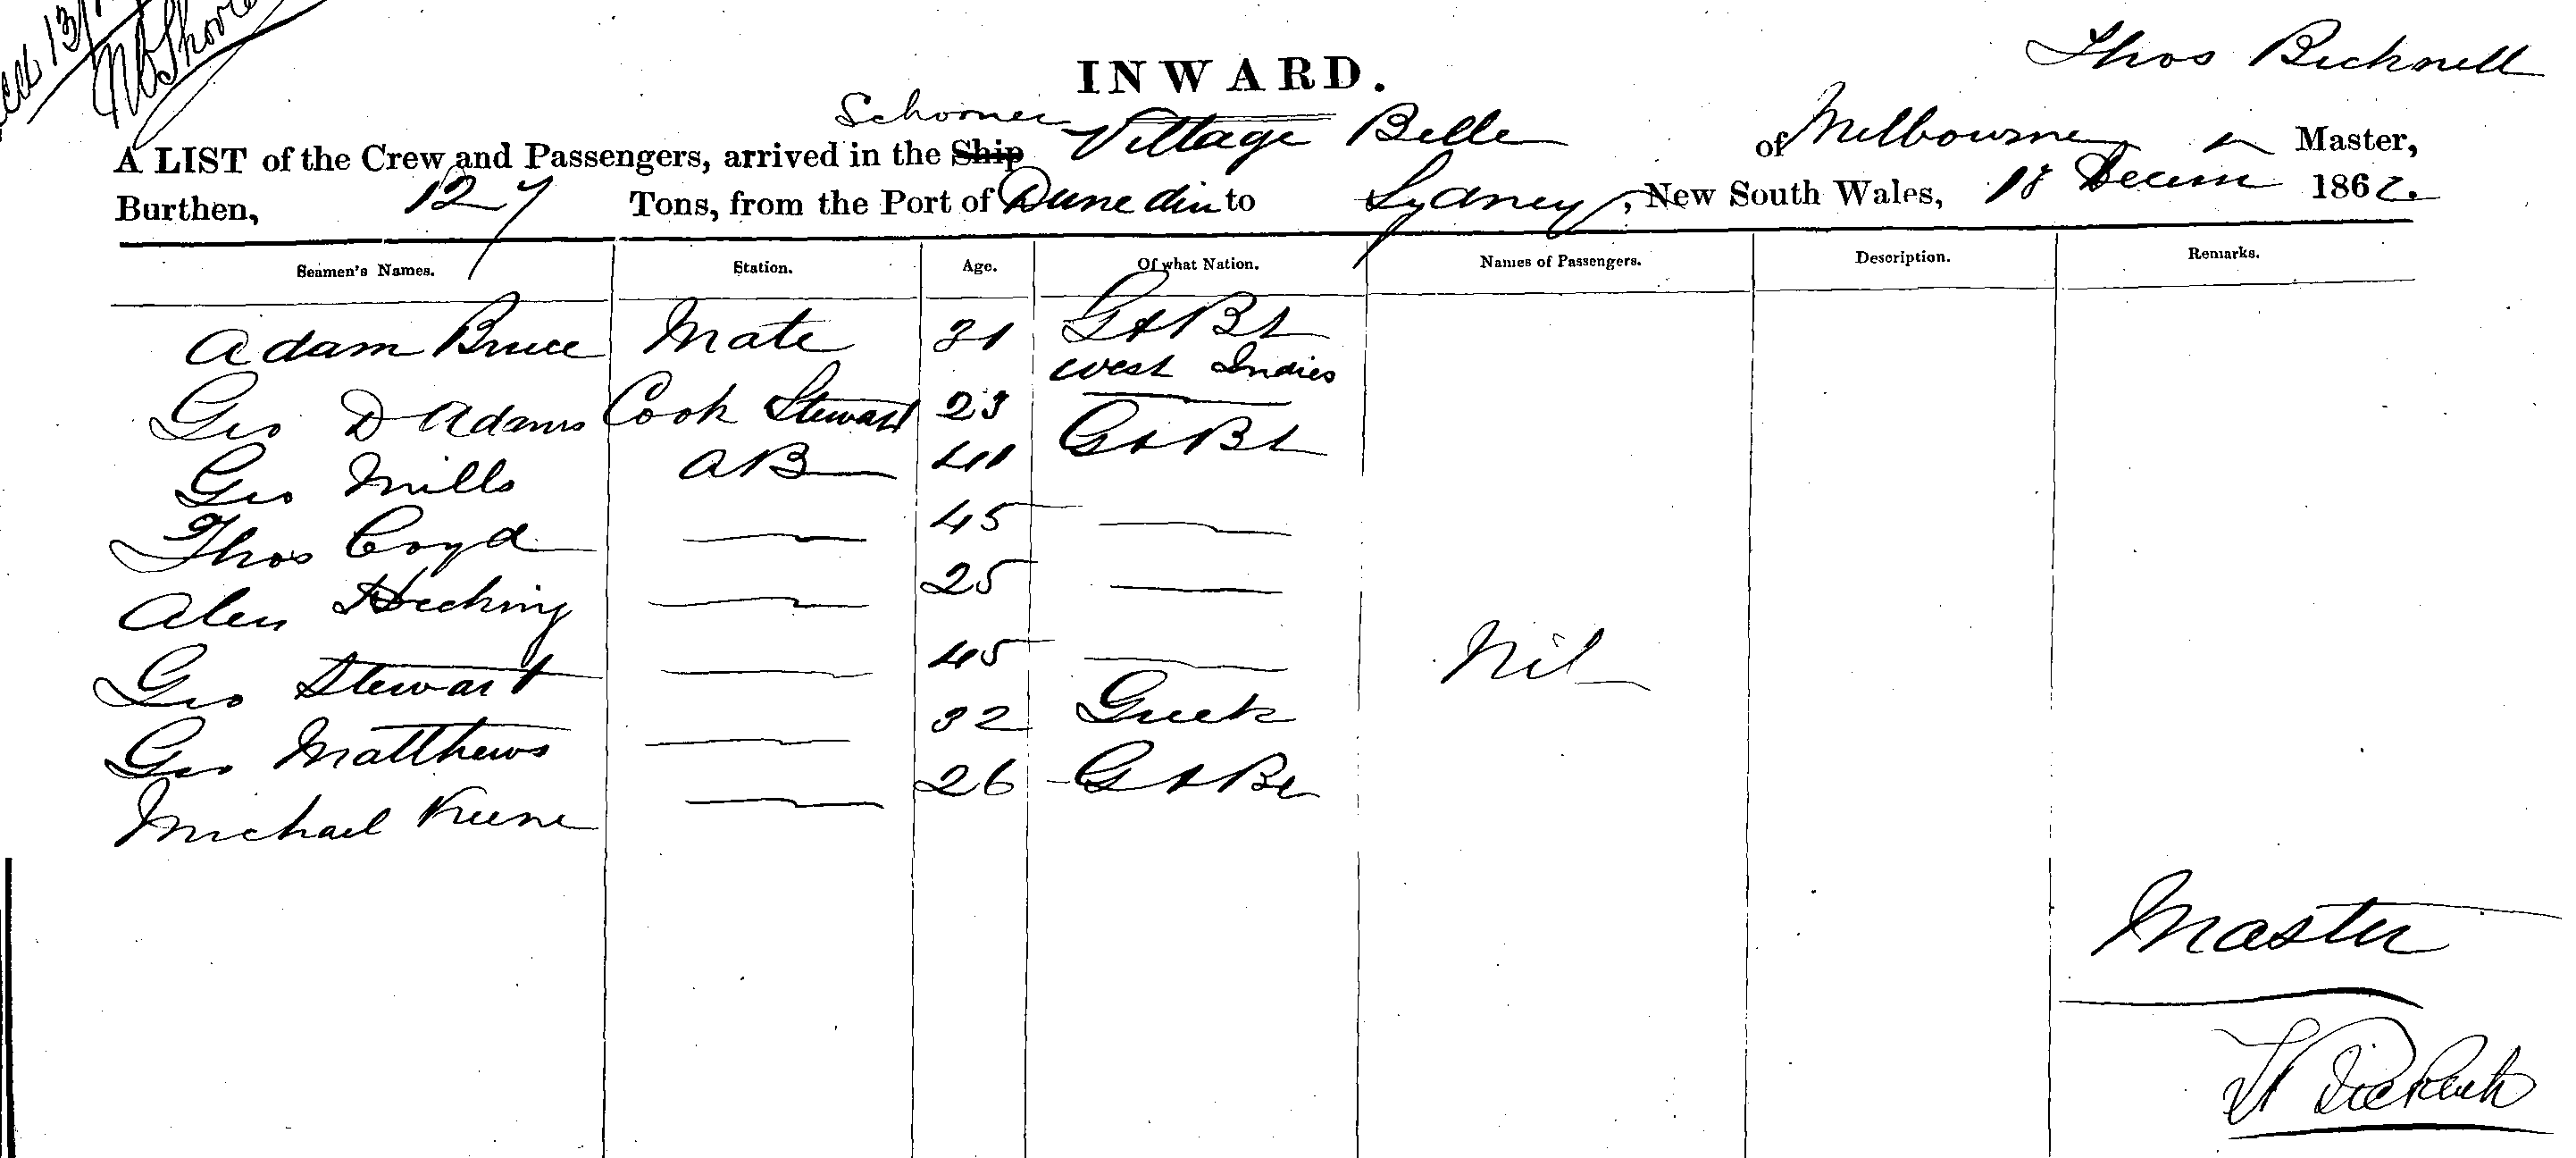 13/
INWARD.
Thos Bicknell
Schooner
A LIST of the Crew and Passengers, arrived in the Ship Village Belle of Melbourne Master,
Burthen, 127 Tons, from the Port of Dunedin to Sydney, New South Wales, 18 Decem 1862.
Seamen's Names. Station. Age. Of what Nation. Names of Passengers. Description. Remarks.
Adam Bruce Mate 31 Gt Bt
Geo D Adams Cook Steward 23 West Indies
Geo Mills AB 41 Gt Bt
Thos 45
Alex 25
Geo Stewart 45
Nil
Geo Matthews 32 Greek
Michael Keene 26 Gt Bt
Master